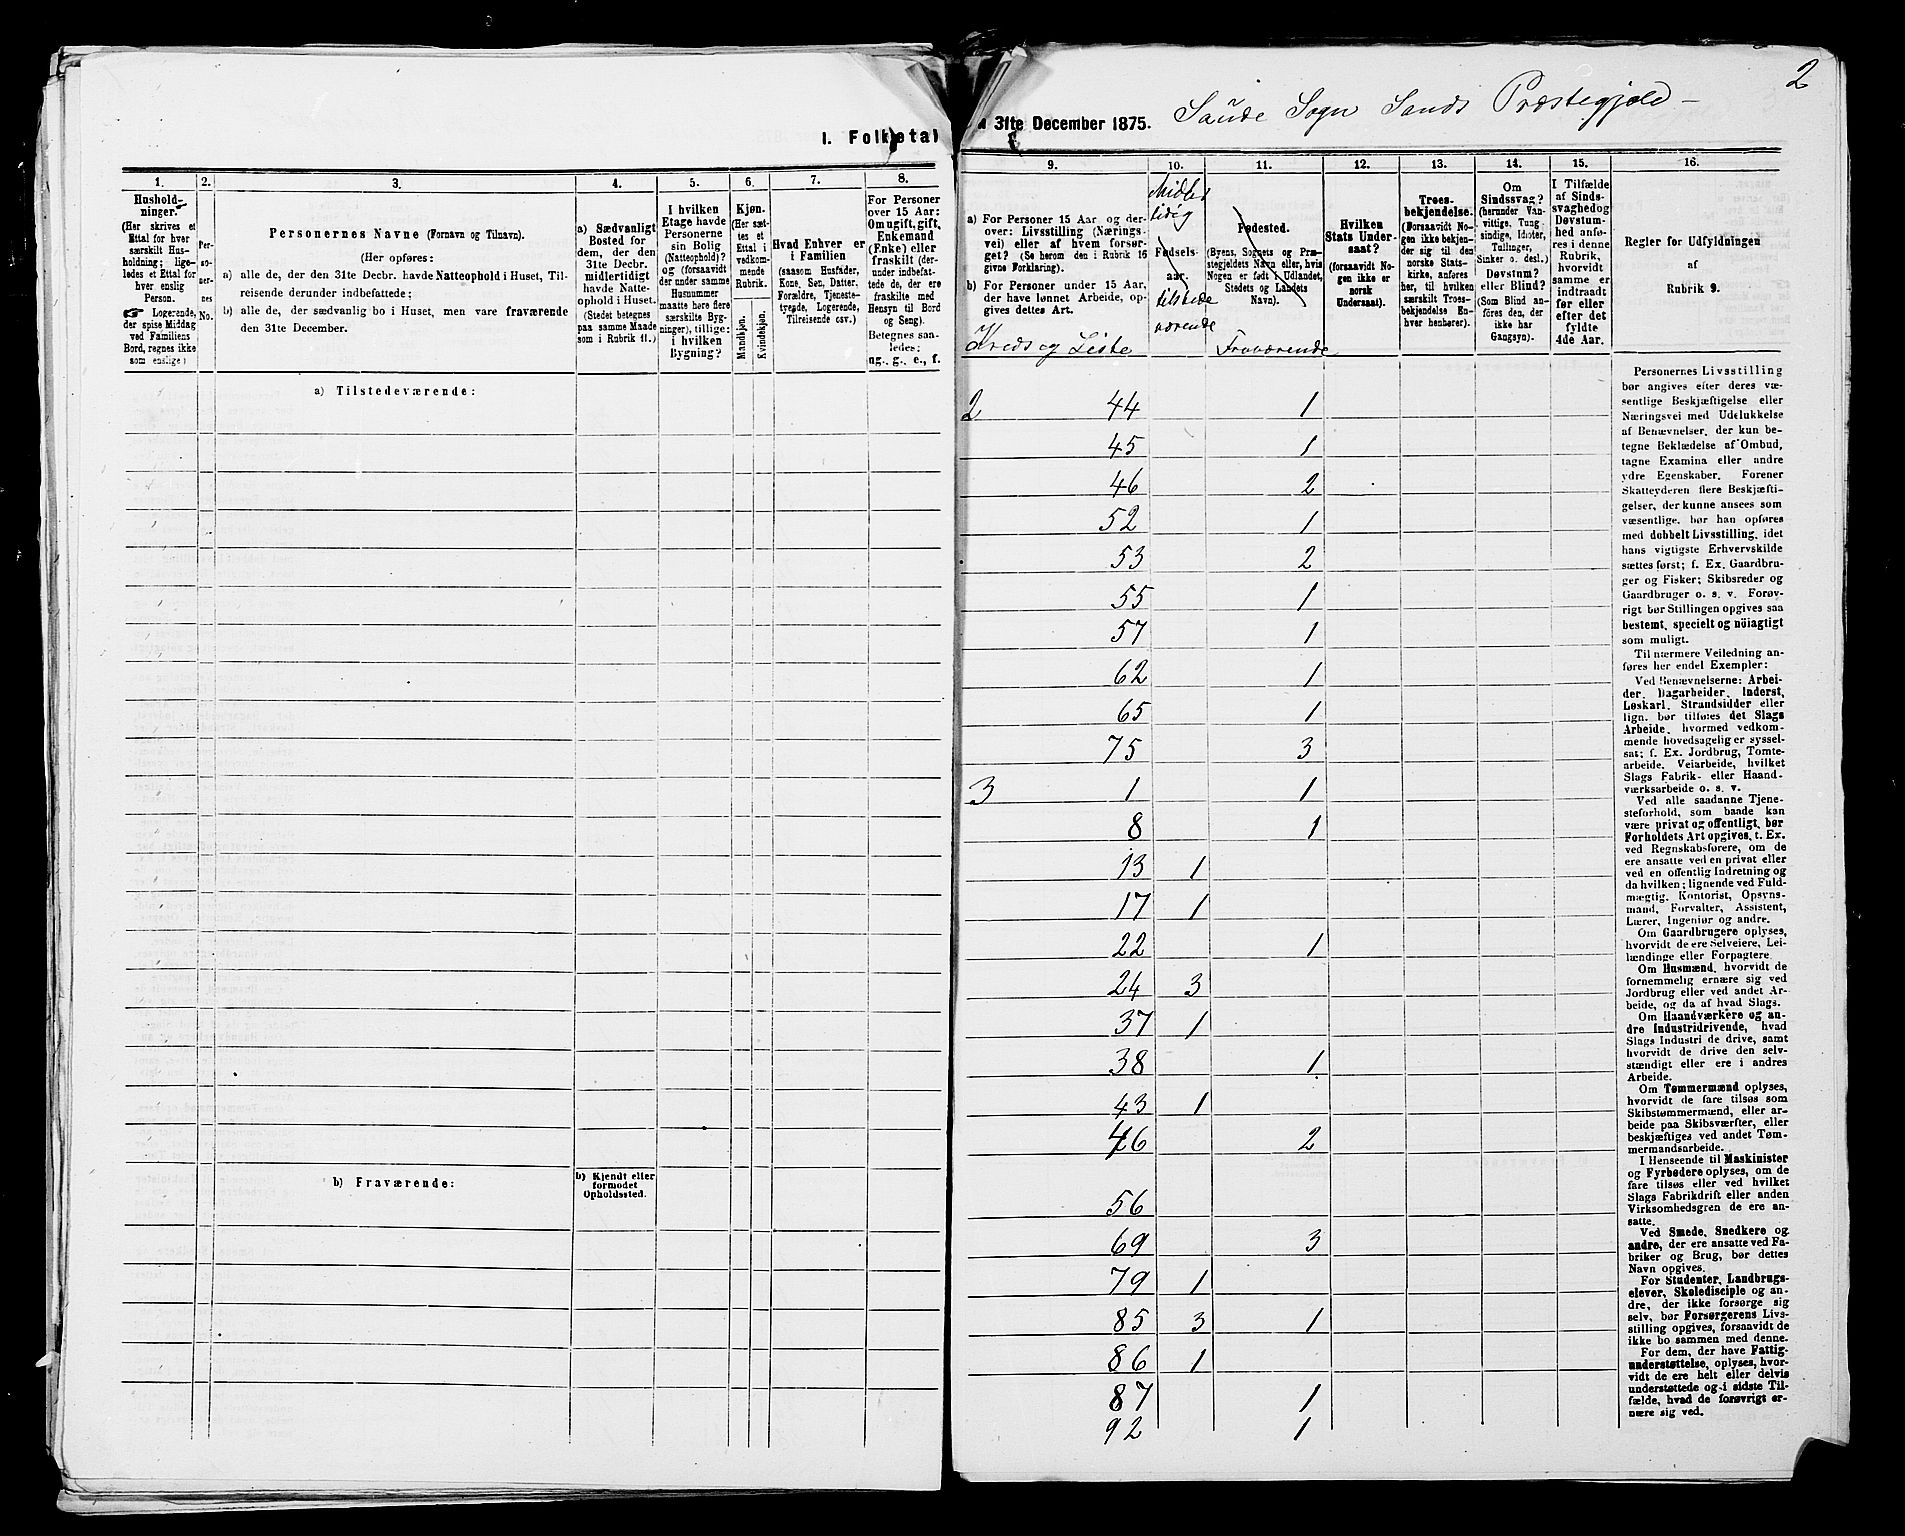 2
Saude Sogn Sands Præstegjeld –
I. Folketal
31te December 1875.
1.
2.
3.
4.
5.
6.
7.
8.
Hushold-
ninger.
(Her skrives et
Ettal for hver
særskilt Hus-
holdning; lige-
ledes et Ettal for
hver enslig
Person.
☞ Logerende,
der spise Middag
ved Familiens
Bord, regnes ikke
som enslige)
Per-
so-
ner-
nes
No.
Personernes Navne (Fornavn og Tilnavn).
(Her opføres:
a) alle de, der den 31te Decbr. havde Natteophold i Huset, Til-
reisende derunder indbefattede;
b) alle de, der sædvanlig bo i Huset, men vare fraværende
den 31te December.
a) Sædvanligt
Bosted for
dem, der den
31te Decbr.
midlertidigt
havde Natte-
ophold i Huset.
(Stedet betegnes
paa samme Maade
som i Rubrik 11.)
I hvilken
Etage havde
Personerne
sin Bolig
(Natteophold)?
og (forsaavidt
der under samme
Husnummer
maatte høre flere
særskilte Byg-
ninger), tillige:
i hvilken
Bygning?
Kjøn.
(Her sæt-
tes et
Ettal i
vedkom-
mende
Rubrik.
Mandkjøn.
Kvindekjøn.
Hvad Enhver er
i Familien
(saasom Husfader,
Kone, Søn, Datter,
Forældre, Tjeneste-
tyende, Logerende,
Tilreisende osv.)
For Personer
over 15 Aar:
Om ugift, gift,
Enkemand
(Enke) eller
fraskilt (der-
under indbefat-
tede de, der ere
fraskilte med
Hensyn til Bord
og Seng).
Betegnes saa-
ledes:
ug., g., e., f.
a) Tilstedeværende:
b) Fraværende:
b) Kjendt eller
formodet
Opholdssted.
9.
10.
11.
12.
13.
14.
15.
16.
a) For Personer 15 Aar og der-
over: Livsstilling (Nærings-
vei) eller af hvem forsør-
get? (Se herom den i Rubrik 16
givne Forklaring).
b) For Personer under 15 Aar,
der have lønnet Arbeide, op-
gives dettes Art.
Kreds og Liste
Midler
tidig
Fødsels-
aar.
tilstede
værende
Fødested.
(Byens, Sognets og Præ-
stegjeldets Navn eller, hvis
Nogen er født i Udlandet,
Stedets og Landets
Navn).
Fraværende
Hvilken
Stats Under-
saat?
(forsaavidt No-
gen ikke er
norsk
Undersaat).
Troes-
bekjendelse.
(Forsaavidt No-
gen ikke bekjen-
der sig til den
norske Stats-
kirke, anføres
her, til hvilken
særskilt Troes-
bekjendelse En-
hver henhører).
Om
Sindssvag?
(herunder Van-
vittige, Tung-
sindige, Idioter,
Tullinger,
Sinker o. desl.)
Døvstum?
eller Blind?
(Som Blind an-
føres den, der
ikke har
Gangsyn).
I Tilfælde
af Sinds-
svaghed og
Døvstum-
hed anfø-
res i denne
Rubrik,
hvorvidt
samme er
indtraadt
før eller
efter det
fyldte
4de Aar.
Regler for Udfyldningen
af
Rubrik 9.
2 44 1
45 1
46 2
52 1
53 2
55 1
57 1
62 1
65 1
75 3
3 1 1
8 1
13 1
17 1
22 1
24 3
37 1
38 1
43 1
46 2
56
69 3
79 1
85 3 1
86 1
87 1
92 1
Personernes Livsstilling
bør angives efter deres væ-
sentlige Beskjæftigelse eller
Næringsvei med Udelukkelse
af Benævnelser, der kun be-
tegne Beklædelse af Ombud,
tagne Examina eller andre
ydre Egenskaber. Forener
Skatteyderen flere Beskjæfti-
gelser, der kunne ansees som
væsentlige, bør han opføres
med dobbelt Livsstilling, idet
hans vigtigste Erhvervskilde
sættes først; f. Ex. Gaardbru-
ger og Fisker; Skibsreder og
Gaardbruger o. s. v. Forøv-
rigt bør Stillingen opgives saa
bestemt, specielt og nöiagtigt
som muligt.
Til nærmere Veiledning an-
føres her endel Exempler:
Ved Benævnelserne: Arbei-
der, Dagarbeider, Inderst,
Løskarl, Strandsidder eller
lign. bør tilføres det Slags
Arbeide, hvormed vedkom-
mende hovedsagelig er syssel-
sat; f. Ex. Jordbrug, Tomte-
arbeide, Veiarbeide, hvilket
Slags Fabrik- eller Haand-
værksarbeide o. s. v.
Ved alle saadanne Tjene-
steforhold, som baade kan
være privat og offentligt, bør
Forholdets Art opgives, t. Ex.
ved Regnskabsførere, om de
ere ansatte ved en privat eller
ved en offentlig Indretning og
da hvilken; lignende ved Fuld-
mægtig, Kontorist, Opsyns-
mand, Forvalter, Assistent,
Lærer, Ingeniør og andre.
Om Gaardbrugere oplyses,
hvorvidt de ere Selveiere, Lei-
lændinge eller Forpagtere.
Om Husmænd, hvorvidt de
fornemmelig ernære sig ved
Jordbrug eller ved andet Ar-
beide, og da af hvad Slags.
Om Haandværkere og an-
dre Industridrivende, hvad
Slags Industri de drive, samt
hvorvidt de drive den selv-
stændigt eller ere i andres
Arbeide.
Om Tømmermænd oplyses,
hvorvidt de fare tilsøs som
Skibstømmermænd, eller ar-
beide paa Skibsværfter, eller
beskjæftiges ved andet Tøm-
mermandsarbeide.
I Henseende til Maskinister
og Fyrbødere oplyses, om de
fare tilsøs eller ved hvilket
Slags Fabrikdrift eller anden
Virksomhedsgren de ere an-
satte.
Ved Smede, Snedkere og
andre, der ere ansatte ved Fa-
briker og Brug, bør dettes
Navn opgives.
For Studenter, Landbrugs-
elever, Skoledisciple og an-
dre, der ikke forsørge sig
selv, bør Forsørgerens Livs-
stilling opgives, forsaavidt de
ikke bo sammen med denne.
For dem, der have Fattig-
understøttelse, oplyses, hvor-
vidt de ere helt eller delvis
understøttede og i sidste Til-
fælde, hvad de forøvrigt er-
nære sig ved.